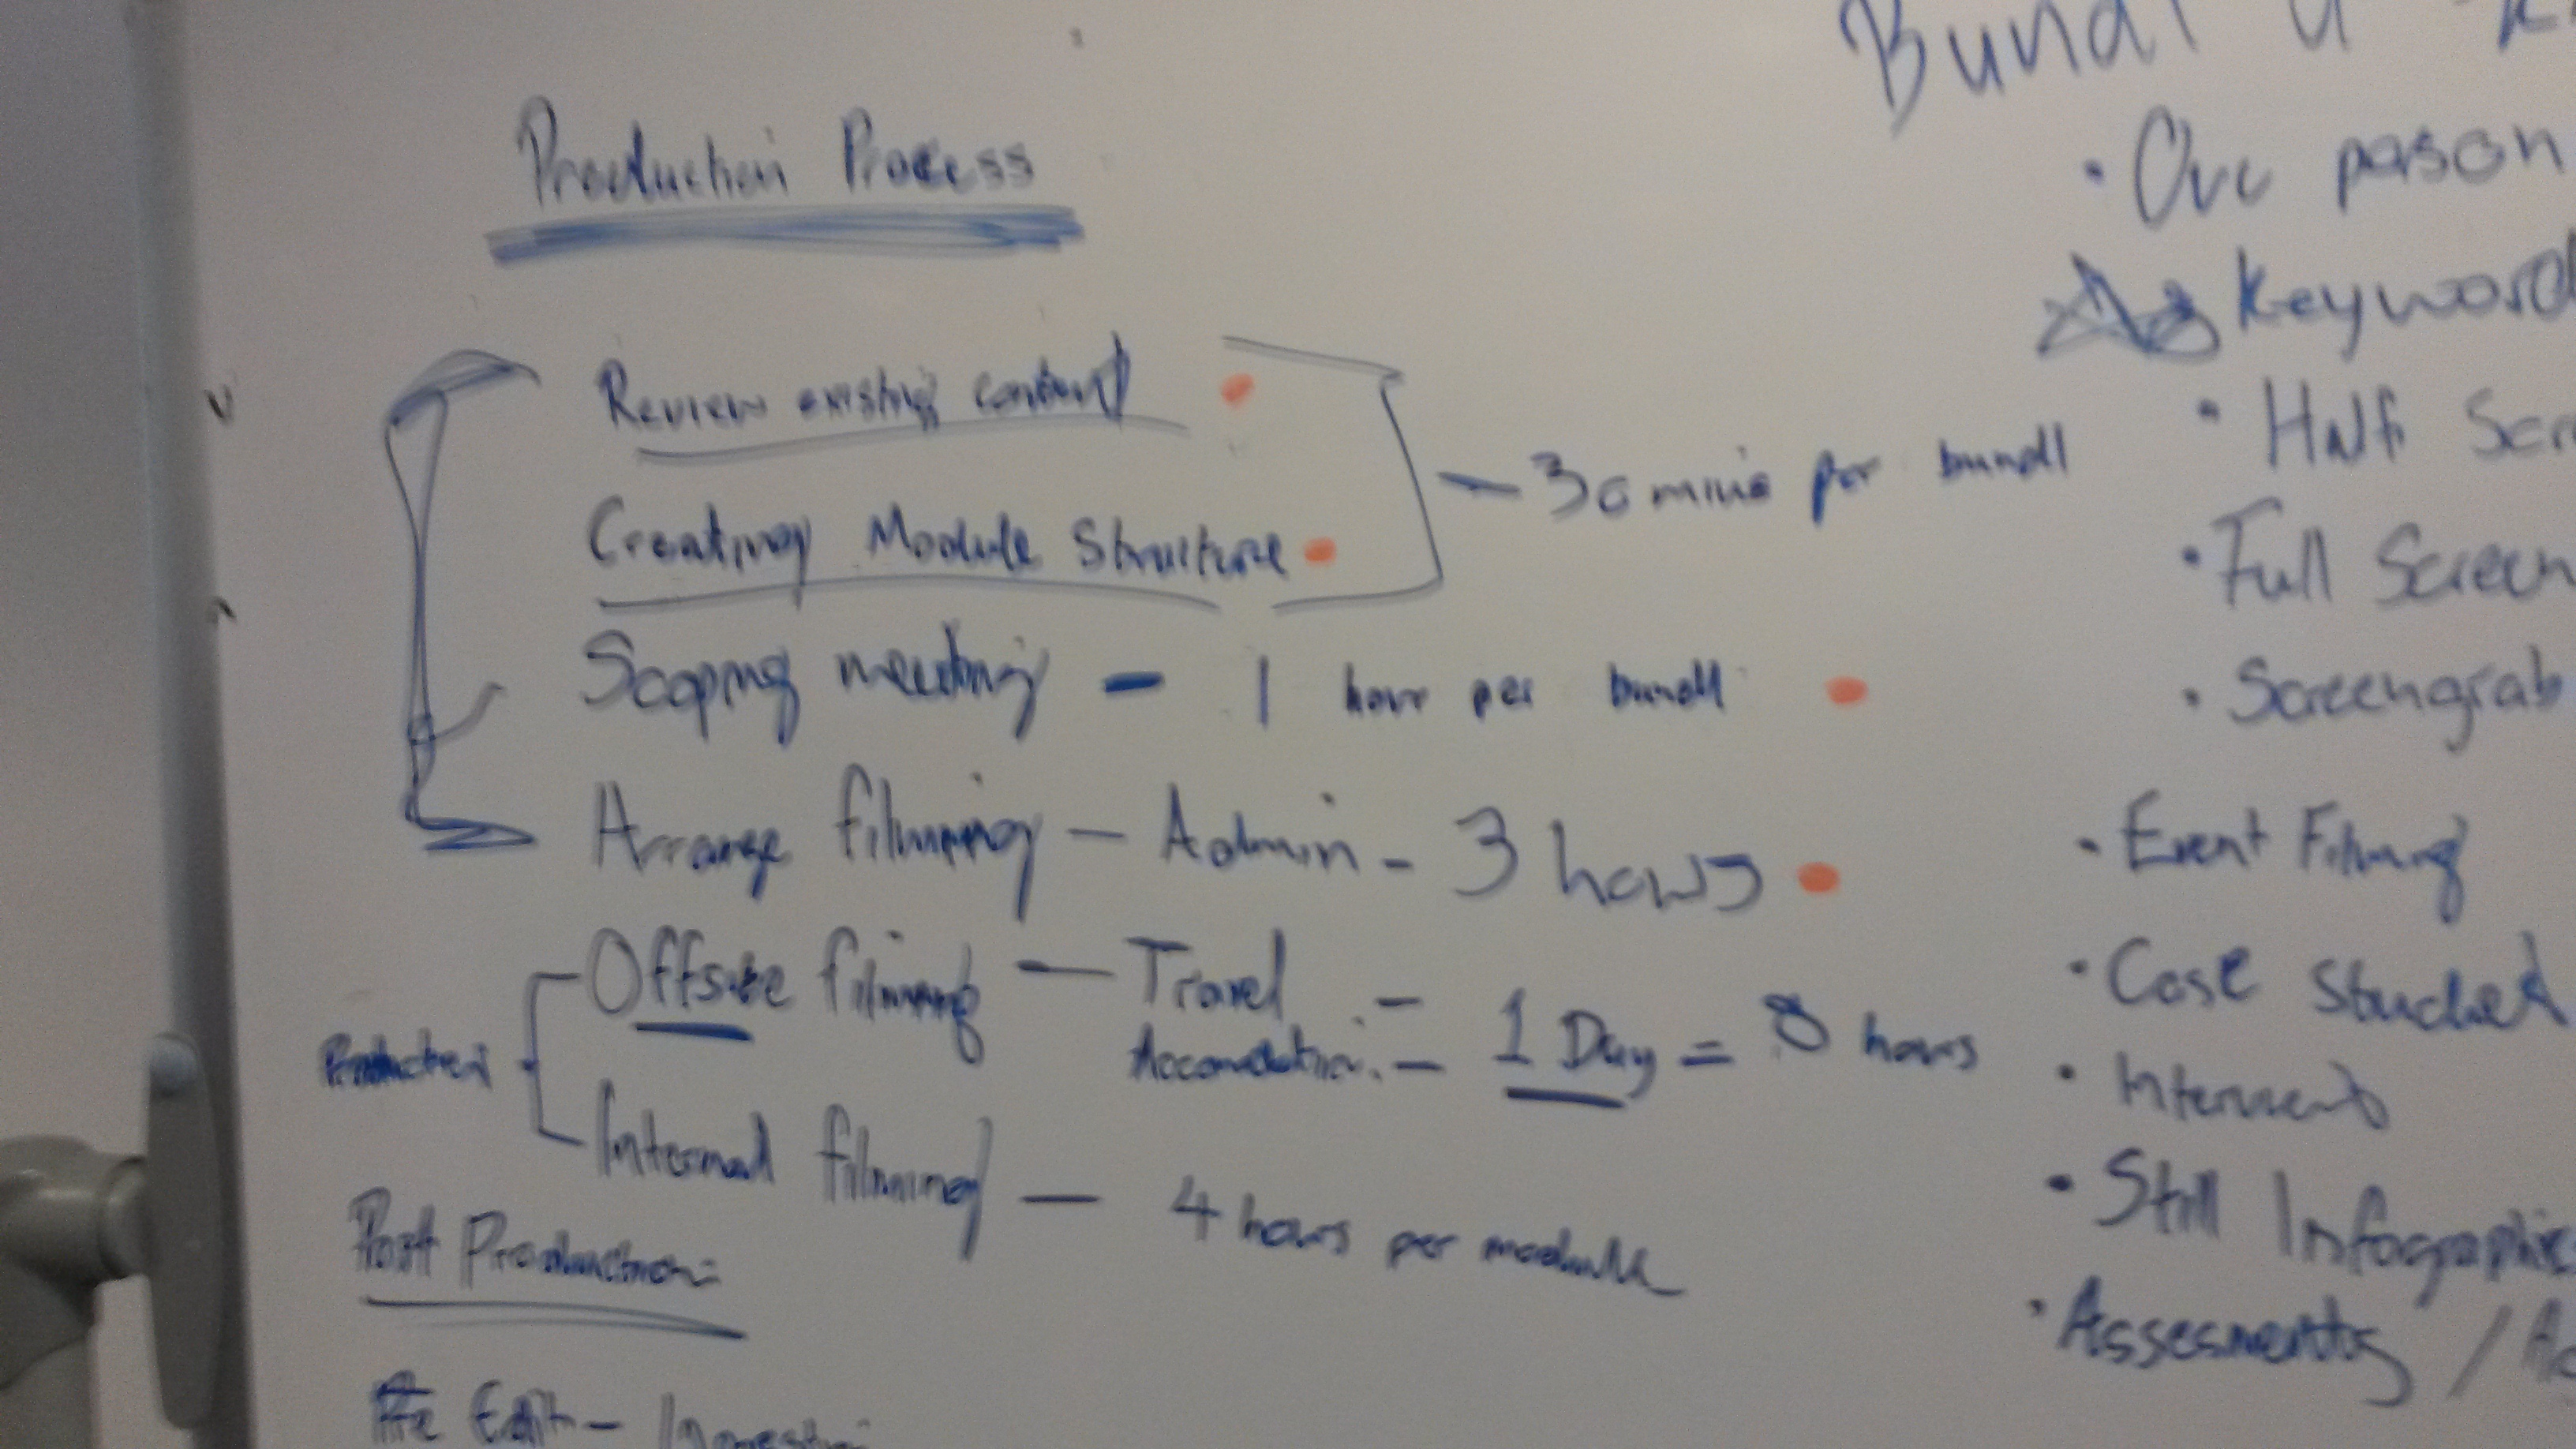 Production Process
Review existing content
Creating Module Structure
- 30 mins per bundl
Scoping meeting - 1 hour per bundl
Arrange filming - Admin - 3 hours
Production
Offsite filming - Travel -
Accomodation. - 1 Day = 8 hours
Internal filming - 4 hours per module
Post Production:
Pre Edit -
Bundl
• Ove pason
Keyword
• Half Scr
• Full Screen
• Screengrab
• Event Filming
• Case
•
• Still Infographic
• Assesments / A